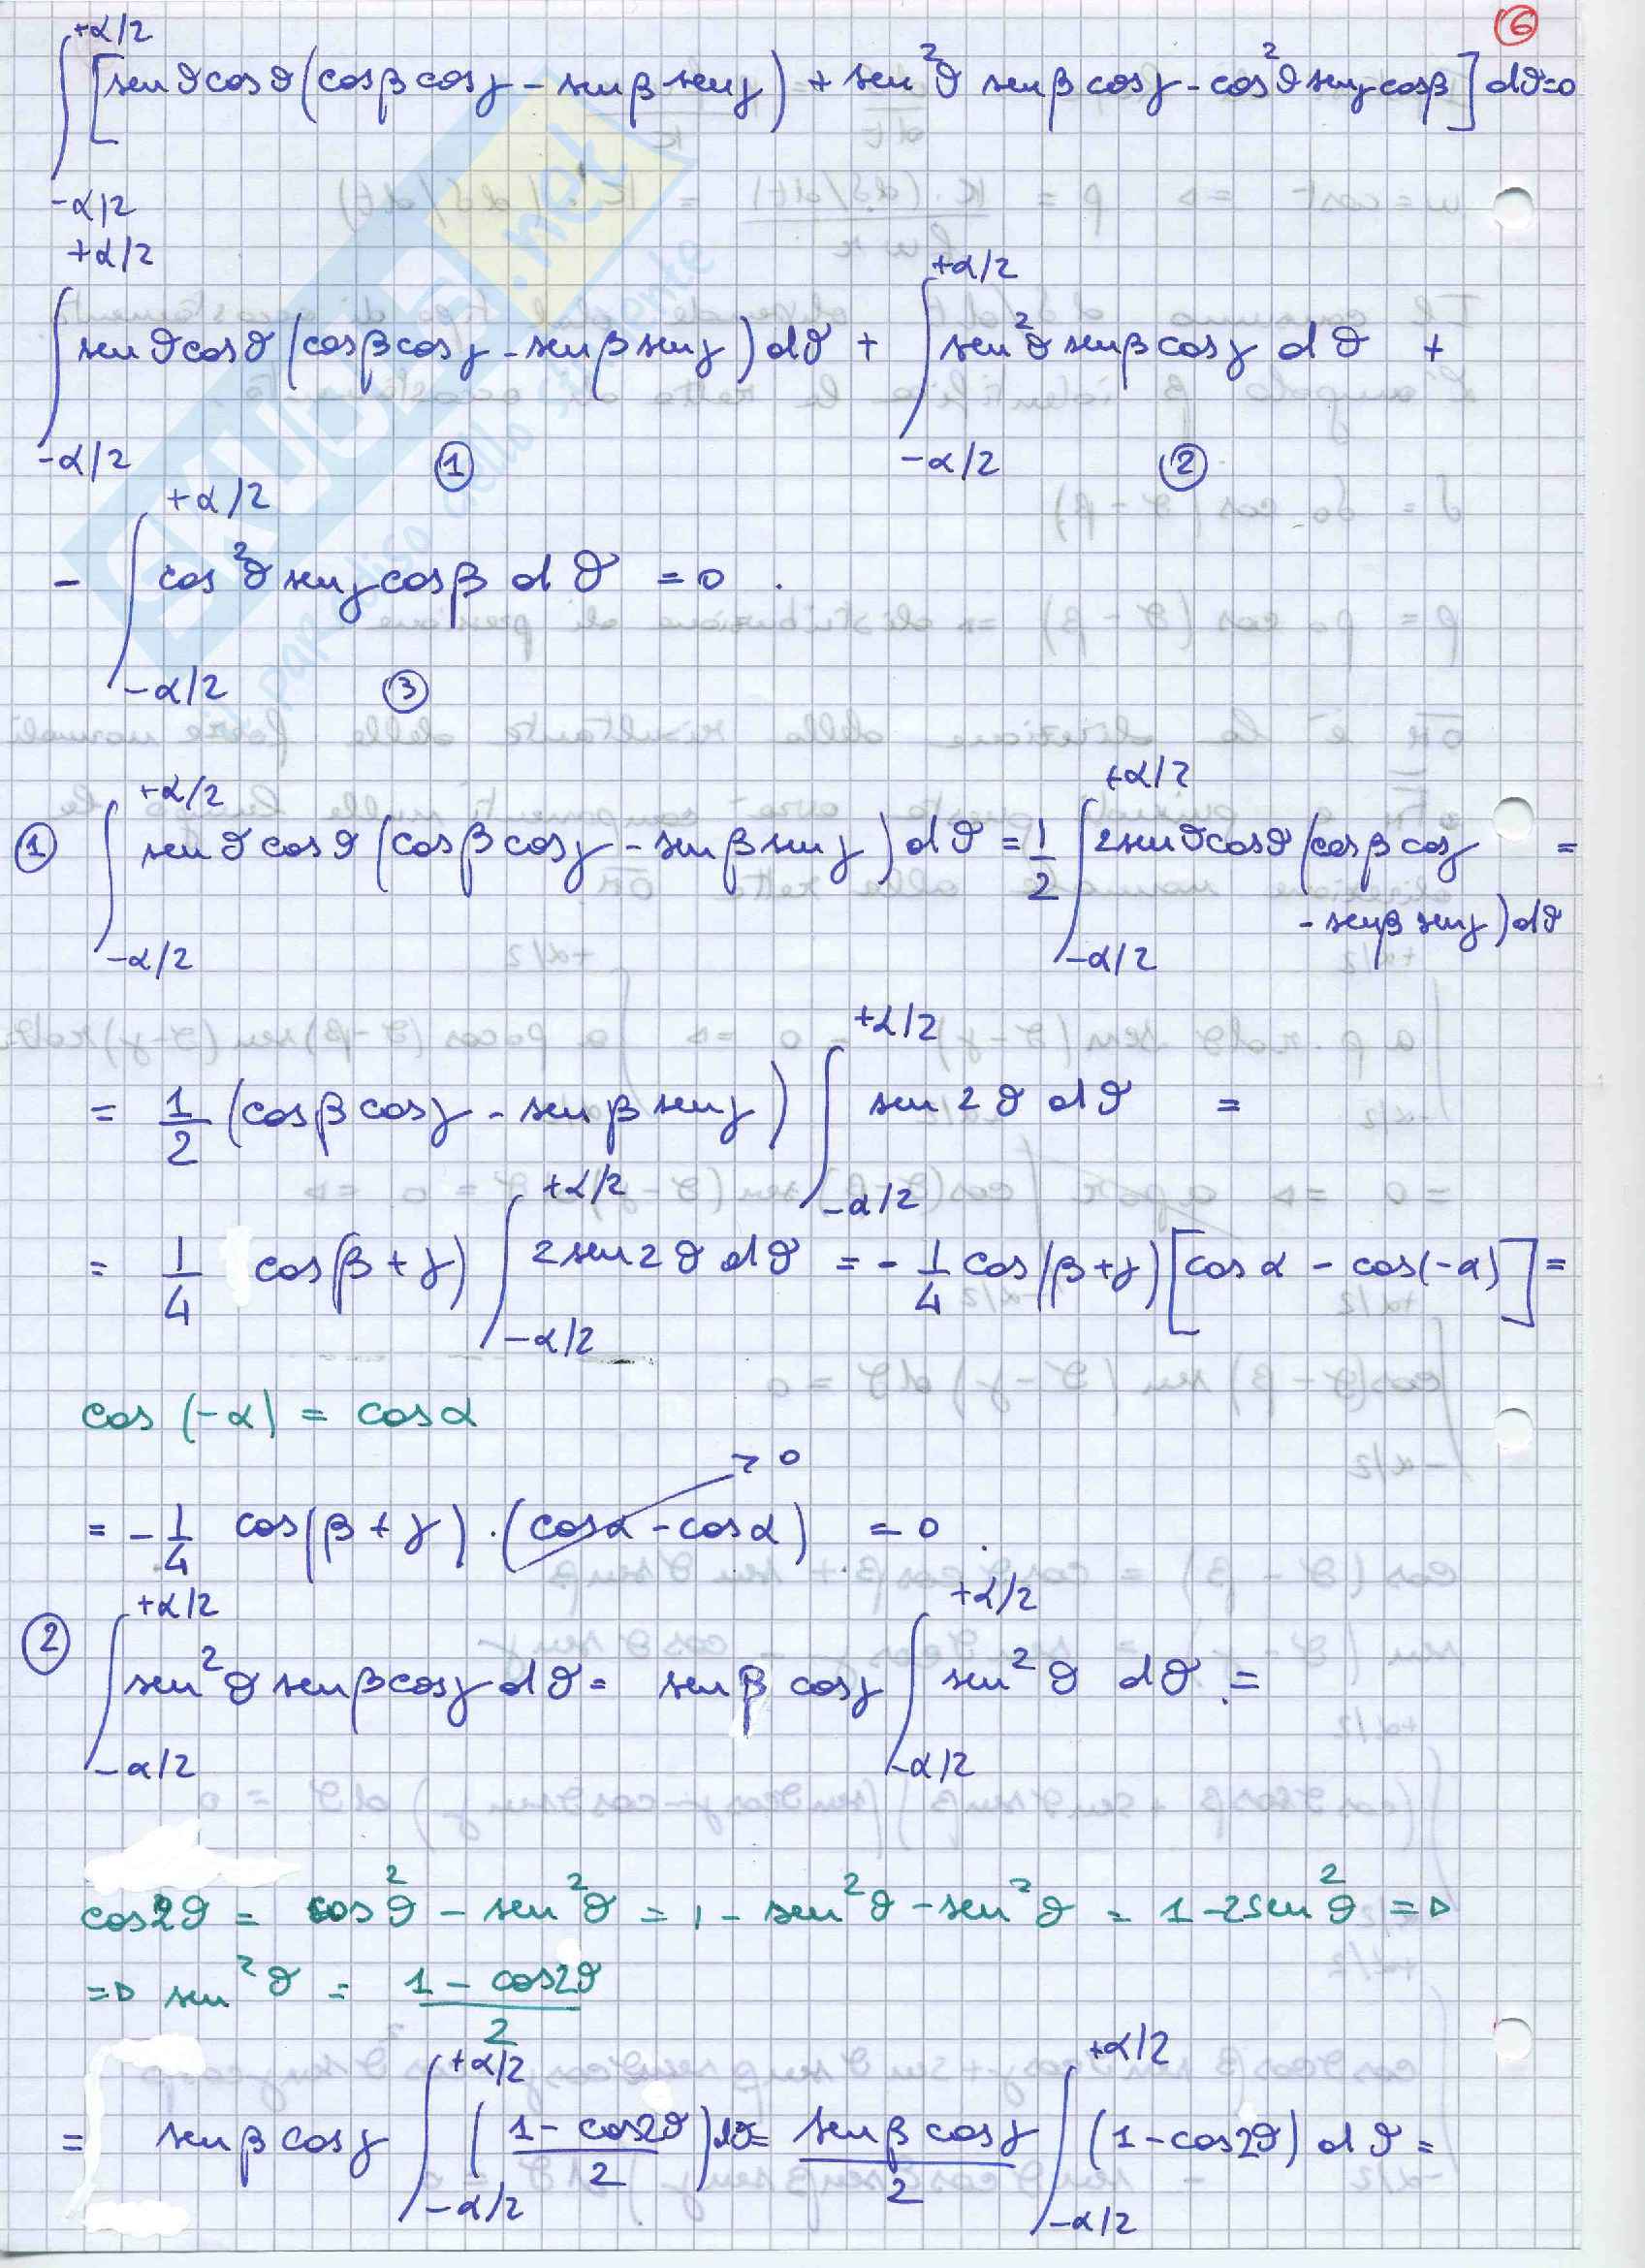 6
∫_{-α/2}^{+α/2} [sen ϑ cos ϑ (cos β cos γ - sen β sen γ) + sen²ϑ sen β cos γ - cos²ϑ sen γ cos β] dϑ = 0
∫_{-α/2}^{+α/2} sen ϑ cos ϑ (cos β cos γ - sen β sen γ) dϑ + ∫_{-α/2}^{+α/2} sen²ϑ sen β cos γ dϑ +
① ②
- ∫_{-α/2}^{+α/2} cos²ϑ sen γ cos β dϑ = 0 .
③
① ∫_{-α/2}^{+α/2} sen ϑ cos ϑ (cos β cos γ - sen β sen γ) dϑ = 1/2 ∫_{-α/2}^{+α/2} 2 sen ϑ cos ϑ (cos β cos γ =
- sen β sen γ) dϑ
= 1/2 (cos β cos γ - sen β sen γ) ∫_{-α/2}^{+α/2} sen 2ϑ dϑ =
= 1/4 cos(β + γ) ∫_{-α/2}^{+α/2} 2 sen 2ϑ dϑ = - 1/4 cos(β + γ) [cos α - cos(-α)] =
cos (-α) = cos α
= - 1/4 cos(β + γ) · (cos α - cos α) → 0 = 0 .
② ∫_{-α/2}^{+α/2} sen²ϑ sen β cos γ dϑ = sen β cos γ ∫_{-α/2}^{+α/2} sen²ϑ dϑ =
cos 2ϑ = cos²ϑ - sen²ϑ = 1 - sen²ϑ - sen²ϑ = 1 - 2 sen²ϑ =>
=> sen²ϑ = (1 - cos 2ϑ)/2
= sen β cos γ ∫_{-α/2}^{+α/2} ((1 - cos 2ϑ)/2) dϑ = (sen β cos γ)/2 ∫_{-α/2}^{+α/2} (1 - cos 2ϑ) dϑ =
SKUOLA.net